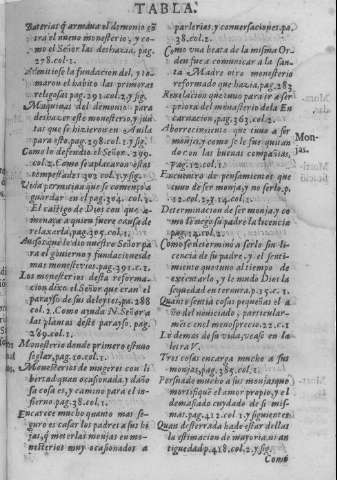 TABLA.
Baterias q̃ armaua el demonio cõ
tra el nueuo monesterio, y co-
mo el Señor las deshazia, pag.
278.col.1.
Admitiose la fundacion del, y to-
maron el habito las primeras
religosas pag.291.col.2.y sig.
Maquinas del demonio para
deshazer este monesterio, y jun-
tas que se hizieron en Auila
para esto.pag.298.col.1.y sig.
Como lo defendio el Señor.299.
col.2. Como se aplacaron estas
tempestades 302 col.1.y sig.
Vida primitiua que se começo a
guardar en el pag.304. col.1.
El castigo de Dios con que a-
menaza a quien fuere causa de
relaxarla, pag.305.col.1.
Auisos que le dio nuestro Señor pa
ra el gouierno y fundaciones de
mas monesterios.pag.391.c.2.
Los monesterios desta reforma-
cion dixo el Señor que eran el
parayso de sus deleytes, pa.288
col.2. Como ayuda N.Señor a
las plantas deste parayso. pag.
289.col.1.
Monesterio donde primero estuuo
seglar, pag.10.col.1.
Monesterios de mugeres con li
bertad quan ocasionada y daño
sa cosa es, y camino para el in-
fierno.pag.38.col.1.
Encarece mucho quanto mas se-
guro es casar los padres a sus hi
jas, q̃ meterlas monjas en mo-
nesterios muy ocasionados a
parlerias, y conuersaciones.pa.
38.col.2.
Como vna beata de la misma Or-
den fue a comunicar a la san-
ta Madre otro monesterio
reformado que hazia, pag.283
Reuelacion que tuuo para ir a ser
priora del monesterio de la En
carnacion, pag.363.col.2.
Mon-
jas.
Aborrecimiento que tuuo a ser
monja, y como se le fue quitan
do con las buenas compañias,
pag.12.col.1.
Encuentro de pensamientos que
tuuo de ser monja, y no serlo, p.
12.col.2.y 14.col.
Determinacion de ser monja, y co
mo le nego su padre la licencia
pag.14.col.2.
Como se determinò a serlo sin li-
cencia de su padre, y el senti-
miento que tuuo al tiempo de
executarlo, y le mudo Dios la
sequedad en ternura.p.15.c.1.
Quanto sentia cosas pequeñas el a-
ño del nouiciado, particular-
mẽte en el menosprecio.22.c.1
Lo demas de su vida, vease en la
letra V.
Tres cosas encarga mucho a sus
monjas, pag.385.col.2.
Persuade mucho a sus monjas que
mortifiquẽ el amor propio, y el
demasiado cuydado de si mis-
mas.pag.412.col.1.y siguientes
Quan desterrada ha de estar dellas
la estimacion de mayoria, ni an
tiguedad p.418.col.2.y sig.
Como